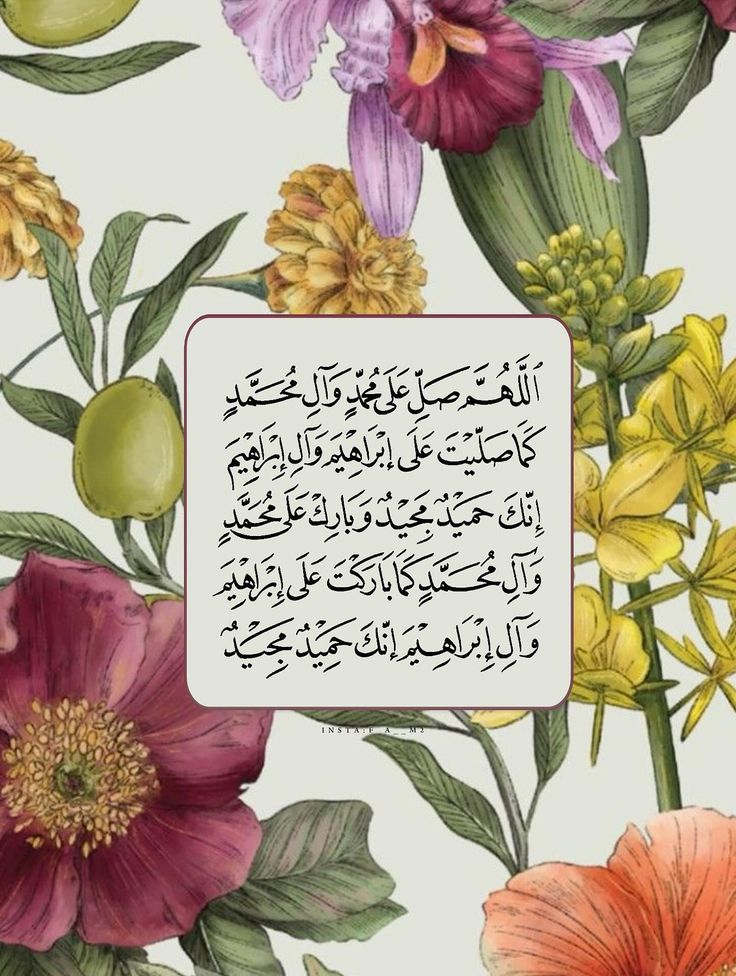 ٱللَّهُمَّ صَلِّ عَلَى مُحَمَّدٍ وَآلِ مُحَمَّدٍ
كَمَا صَلَّيْتَ عَلَى إِبْرَاهِيْمَ وَآلِ إِبْرَاهِيْمَ
إِنَّكَ حَمِيْدٌ مَجِيْدٌ وَبَارِكْ عَلَى مُحَمَّدٍ
وَآلِ مُحَمَّدٍ كَمَا بَارَكْتَ عَلَى إِبْرَاهِيْمَ
وَآلِ إِبْرَاهِيْمَ إِنَّكَ حَمِيْدٌ مَجِيْدٌ
INSTA:F_A__M2